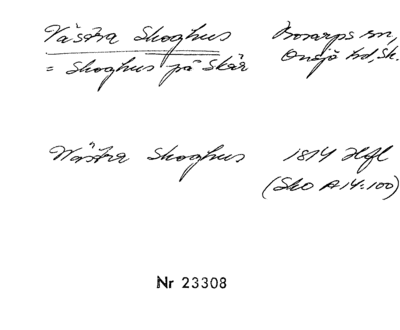 Västra Skoghus Bosarps sn,
= Skoghus på Skår Onsjö hd, Sk.
Wästra Skoghus 1814 Hfl
(Sko A14:100)
Nr 23308